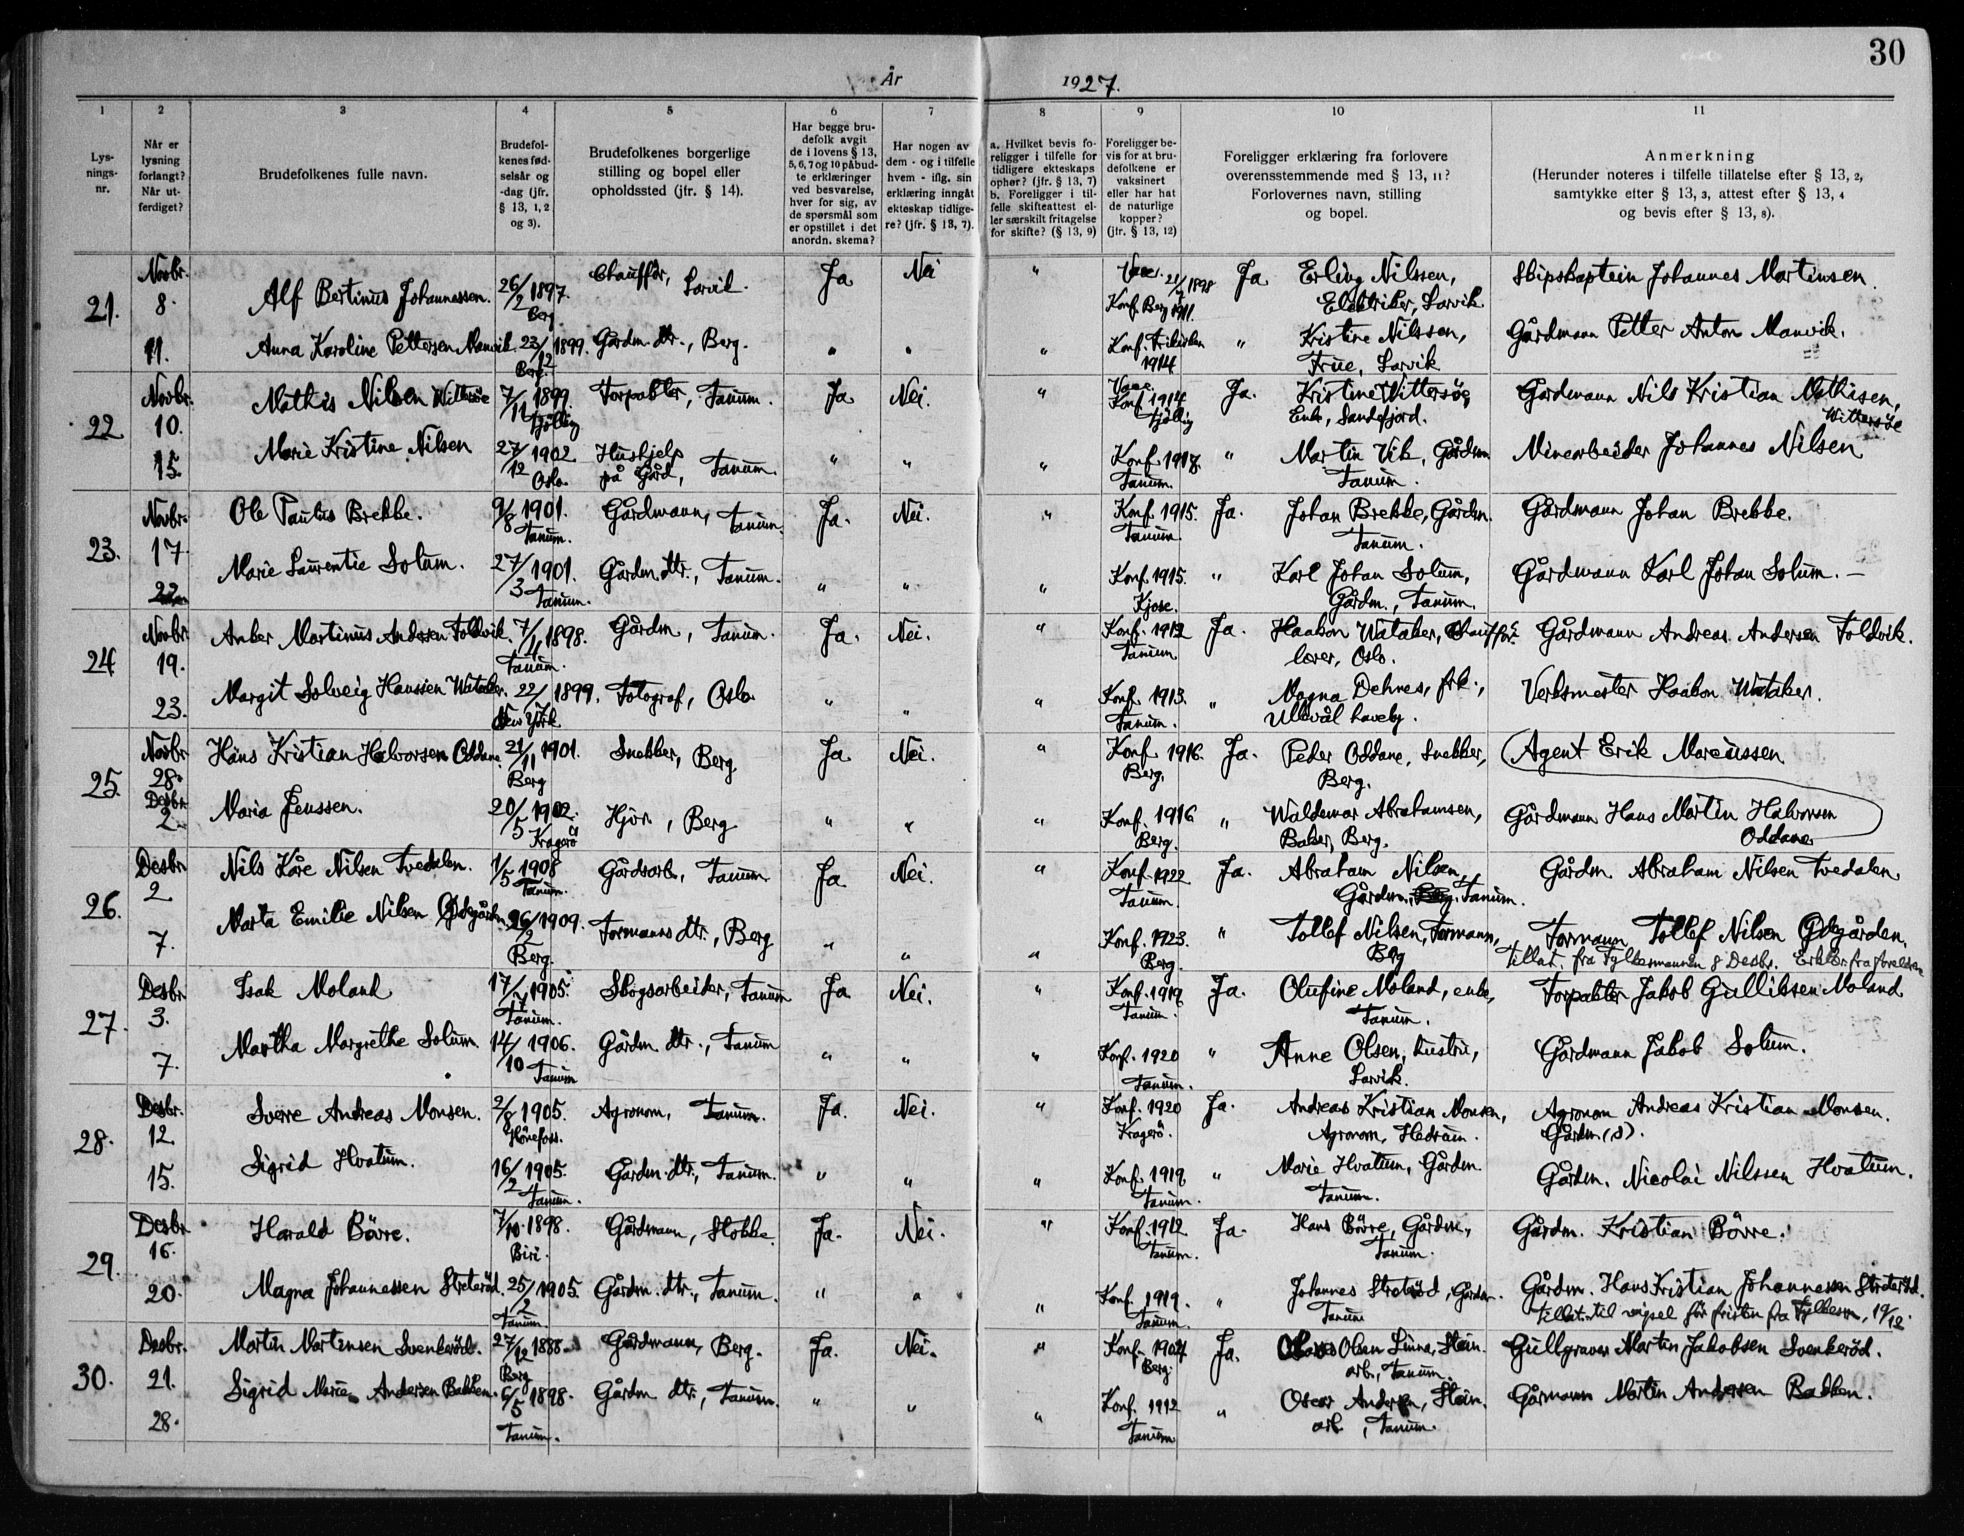 30
År 1927.
1 2 3 4 5 6 7 8 9 10 11
Lysnings-nr.
Når er lysning forlangt? Når utferdiget?
Brudefolkenes fulle navn.
Brudefolkenes fødselsår og -dag (jfr. § 13, 1, 2 og 3).
Brudefolkenes borgerlige stilling og bopel eller opholdssted (jfr. § 14).
Har begge brudefolk avgit de i lovens § 13, 5, 6, 7 og 10 påbudte erklæringer ved besvarelse, hver for sig, av de spørsmål som er opstillet i det anordn. skema?
Har nogen av dem - og i tilfelle hvem - iflg. sin erklæring inngåt ekteskap tidligere? (jfr. § 13, 7).
a. Hvilket bevis foreligger i tilfelle for tidligere ekteskaps ophør? (jfr. § 13, 7) b. Foreligger i tilfelle skifteattest eller særskilt fritagelse for skifte? (§ 13, 9)
Foreligger bevis for at brudefolkene er vaksinert eller har hat de naturlige kopper? (jfr. § 13, 12)
Foreligger erklæring fra forlovere overensstemmende med § 13, 11? Forlovernes navn, stilling og bopel.
Anmerkning (Herunder noteres i tilfelle tillatelse efter § 13, 2, samtykke efter § 13, 3, attest efter § 13, 4 og bevis efter § 13, 8).
21. Novbr. 8. Alf Bertinus Johannessen. 26/2 1897. Berg Chauffør, Larvik. Ja Nei " Vacc. 1898 Konf. Berg 1911. Ja Erling Nilssen, Elektriker, Larvik Skipskaptein Johannes Martinsen.
11. Anna Karoline Pettersen Manvik 23/12 1899. Berg. Gårdm. dtr., Berg. " " " Konf. Frikirken 1914 " Kristine Nilssen, Frue, Larvik Gårdmann Petter Anton Manvik.
22 Novbr. 10. Mathis Nilsen Wittersøe 7/11 1899. Tjølling Forpakter, Tanum. Ja Nei. " Vacc. Konf. 1914 Tjølling Ja. Kristine Wittersøe, Enke, Sandefjord. Gårdmann Nils Kristian Mathisen, Wittersøe
15. Marie Kristine Nilsen 27/12 1902 Oslo. Hushjelp på Gård, Tanum. " " " Konf. 1918. Tanum. " Martin Vik, Gårdm Tanum. Minearbeider Johannes Nilsen
23. Novbr. 17. Ole Paulus Brekke. 9/8 1901. Tanum. Gårdmann, Tanum. Ja. Nei. " Konf. 1915. Tanum. Ja. Johan Brekke, Gårdm. Tanum. Gårdmann Johan Brekke.
22. Marie Laurentie Solum. 27/3 1901. Tanum. Gårdm. dtr., Tanum. " " " Konf. 1915. Kjose. " Karl Johan Solum, Gårdm., Tanum. Gårdmann Karl Johan Solum. –
24 Novbr. 19. Anker Martinus Andersen Foldvik. 7/4 1898. Tanum. Gårdm, Tanum. Ja. Nei. " Konf. 1912 Tanum Ja. Haakon Wataker, Chauffør lærer, Oslo. Gårdmann Andreas Andersen Foldvik.
23. Margit Solveig Hanssen Wataker. 22/7 1899. New York Fotograf, Oslo " " " Konf. 1913. Tanum. " Magna Dehnes, frk., Ullevål haveby. Verksmester Haakon Wataker.
25. Novbr 28. Hans Kristian Halvorsen Oddane. 21/11 1901. Berg Snekker, Berg. Ja Nei. " Konf 1916. Berg. Ja. Peder Oddane, Snekker, Berg. Agent Erik Marcussen
Desbr. 2. Maria Jenssen. 20/5 1902. Kragerø Hjør., Berg " " " Konf. 1916 Berg. " Waldemar Abrahamsen, Baker, Berg. Gårdmann Hans Martin Halvorsen Oddane
26. Desbr. 2 Nils Kåre Nilsen Tvedalen. 1/5 1908 Tanum. Gårdsarb., Tanum. Ja Nei. " Konf. 1922 Tanum. Ja. Abraham Nilsen, Gårdm., Tanum. Gårdm. Abraham Nilsen Tvedalen
7. Marta Emilie Nilsen Ødegården 26/2 1909. Berg. Formanns dtr., Berg " " " Konf. 1923. Berg. " Tollef Nilsen, Formann, Berg Formann Tollef Nilsen Ødegården. Tillat. fra Fylkesmannen 8 Desbr. Erklær. fra foreldrene
27. Desbr. 3. Isak Moland 17/7 1905. Tanum. Skogsarbeider, Tanum Ja Nei. " Konf. 1919 Tanum. Ja. Olufine Moland, enke, Tanum. Forpakter Jakob Gulliksen Moland
7. Martha Margrethe Solum 14/10 1906. Tanum Gårdm. dtr., Tanum " " " Konf. 1920 Tanum. " Anne Olsen, hustru, Larvik. Gårdmann Jakob Solum.
28. Desbr. 12. Sverre Andreas Monsen. 2/8 1905. Hønefoss. Agronom, Tanum. Ja. Nei. " Konf. 1920 Kragerø. Ja. Andreas Kristian Monsen, Agronom, Hedrum. Agronom Andreas Kristian Monsen. Gårdm (d).
15. Sigrid Hvatum. 16/2 1905. Tanum. Gårdm. dtr., Tanum. " " " Konf. 1919 Tanum. " Marie Hvatum, Gårdm. Tanum. Gårdm. Nicolai Nilssen Hvatum.
29. Desbr. 16. Harald Børre. 7/10 1898. Biri. Gårdmann, Stokke. Ja. Nei. " Konf. 1912 Tanum. Ja. Hans Børre, Gårdm., Tanum. Gårdm. Kristian Børre.
20. Magna Johannessen Streterød. 25/2 1905. Tanum. Gårdm. dtr., Tanum. " " " Konf. 1919. Tanum. " Johannes Streterød, Gårdm. Tanum Gårdm. Hans Kristian Johannessen Streterød. Tillat. til vigsel før fristen fra Fylkesm. 19/12.
30. Desbr. 21. Martin Martinsen Svenkerød. 27/12 1888. Berg Gårdmann, Berg. Ja. Nei. " Konf. 1904 Berg. Ja. Olsen Linna, Stein. arb., Tanum. Gullgraver Martin Jakobsen Svenkerød.
28. Sigrid Marie Andersen Bakken. 6/5 1898. Tanum. Gårdm. dtr., Tanum. " " " Konf. 1912 Tanum " Oscar Andersen, Stein. arb., Tanum. Gårmann Martin Andersen Bakken.